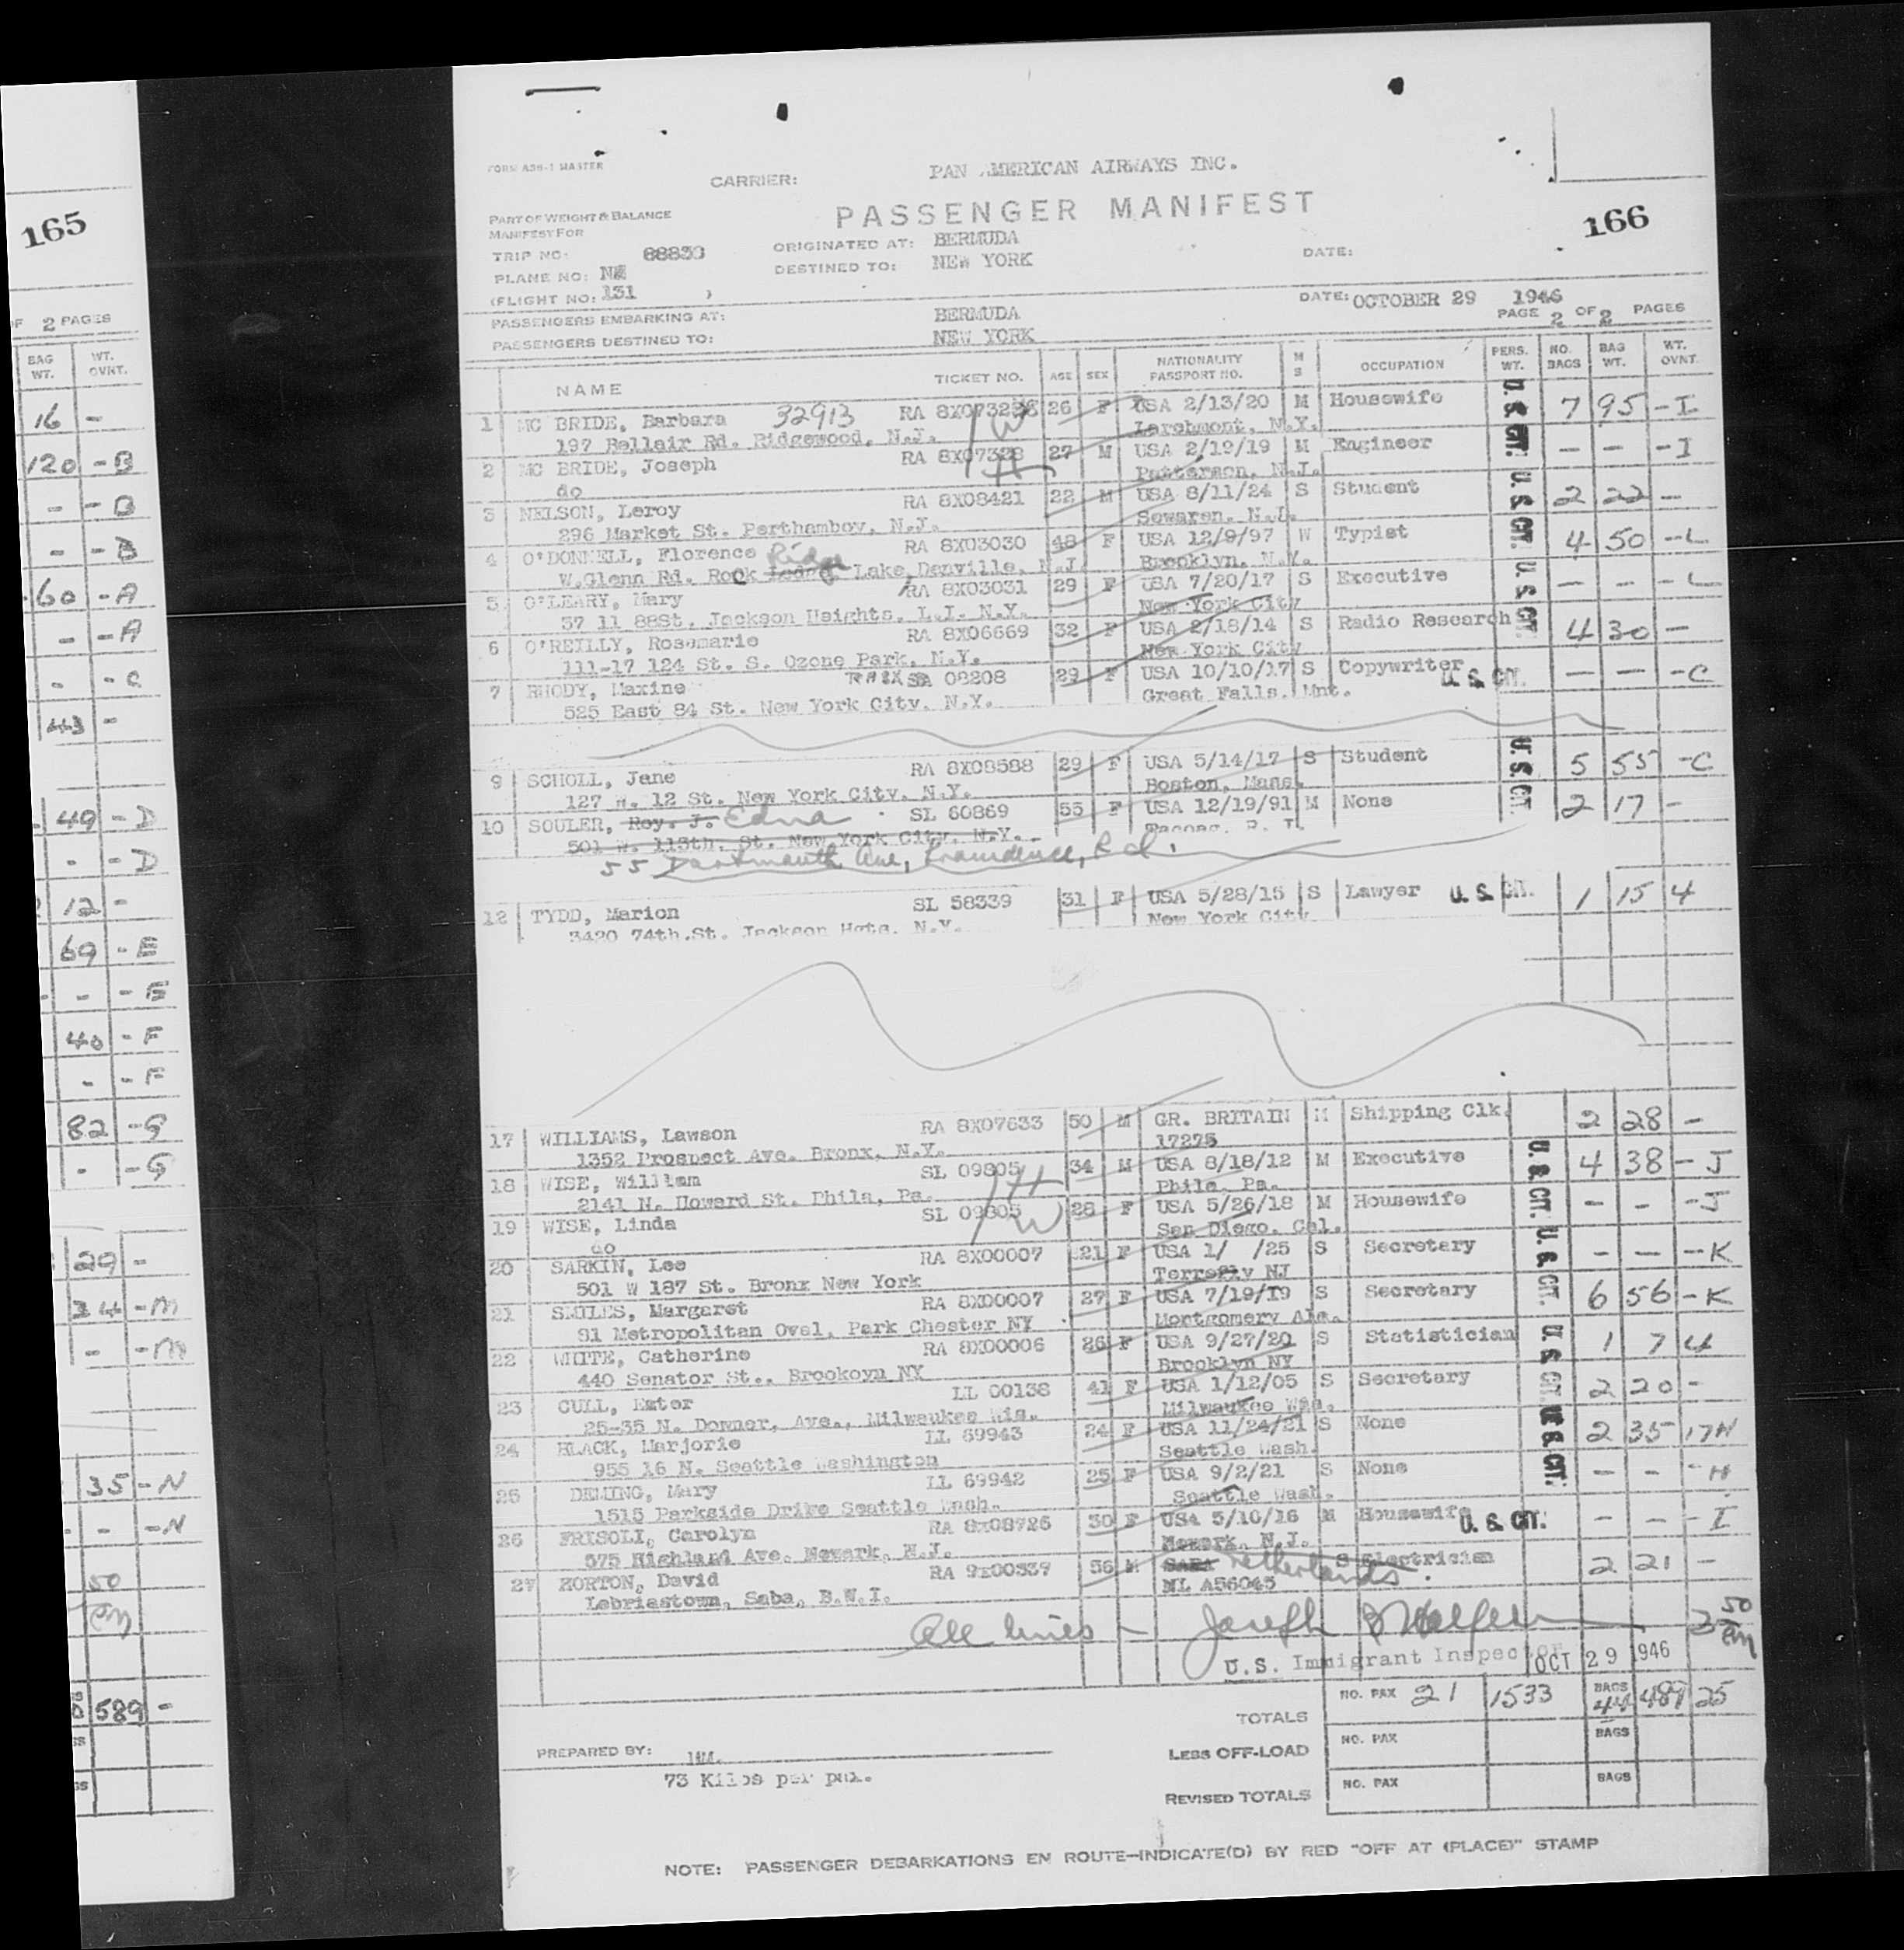 165
OF 2 PAGES
BAG WT. WT. OVNT.
16 -
120 - B
- - B
- - B
60 - A
- - A
- - C
43 -
49 - D
- - D
12 -
69 - E
- - E
40 - F
- - F
82 - G
- - G
29 -
34 - M
- - M
35 - N
- - N
50
589 -
FORM A36-1 MASTER
CARRIER: PAN AMERICAN AIRWAYS INC.
PASSENGER MANIFEST
166
PART OF WEIGHT & BALANCE
MANIFEST FOR
TRIP NO: 88833
ORIGINATED AT: BERMUDA
DATE:
PLANE NO:
DESTINED TO: NEW YORK
(FLIGHT NO: 131 )
DATE: OCTOBER 29 1946
PASSENGERS EMBARKING AT: BERMUDA
PAGE 2 OF 2 PAGES
PASSENGERS DESTINED TO: NEW YORK
NAME TICKET NO. AGE SEX NATIONALITY PASSPORT NO. M S OCCUPATION PERS. WT. NO. BAGS BAG WT. WT. OVNT.
1 MC BRIDE, Barbara 32913 RA 26 F USA 2/13/20 M Housewife U.S. CIT. 7 95 - I
197 Bellair Rd. Ridgewood, N.J. Larchmont, N.Y.
2 MC BRIDE, Joseph RA 8X07328 27 M USA 2/19/19 M Engineer - - - I
do Patterson, N.J.
3 NELSON, Leroy RA 8X08421 22 M USA 8/11/24 S Student U. S. CIT. 2 22 -
296 Market St. Perthamboy, N.J. Sewaren, N.J.
4 O'DONNELL, Florence Ridge RA 8X03030 48 F USA 12/9/97 W Typist 4 50 - L
W.Glenn Rd. Rock Lodge Lake, Denville, N.J. Brooklyn, N.Y.
5 O'LEARY, Mary RA 8X03031 29 F USA 7/20/17 S Executive U. S. CIT. - - - L
37 11 88St. Jackson Heights, L.I. N.Y. New York City
6 O'REILLY, Rosemarie RA 8X06669 32 F USA 2/18/14 S Radio Research 4 30 -
111-17 124 St. S. Ozone Park, N.Y. New York City
7 RHODY, Maxine 08208 29 F USA 10/10/17 S Copywriter U. S. CIT. - - - C
525 East 84 St. New York City, N.Y. Great Falls, Mnt.
9 SCHOLL, Jane RA 8X08588 29 F USA 5/14/17 S Student U. S. CIT. 5 55 - C
127 W. 12 St. New York City, N.Y. Boston, Mass.
10 SOULER, Roy. J. Edna SL 60869 55 F USA 12/19/91 M None 2 17 -
501 W. 113th. St. New York City, N.Y.
55 Dartmouth Ave, Providence, R.I.
12 TYDD, Marion SL 58339 31 F USA 5/28/15 S Lawyer U. S. CIT. 1 15 4
3420 74th.St. Jackson Hgts. N.Y. New York City
17 WILLIAMS, Lawson RA 8X07633 50 M GR. BRITAIN M Shipping Clk. 2 28 -
1352 Prospect Ave. Bronx, N.Y. 17275
18 WISE, William SL 09805 34 M USA 8/18/12 M Executive U. S. CIT. 4 38 - J
2141 N. Howard St. Phila, Pa. Phila. Pa.
19 WISE, Linda SL 09805 28 F USA 5/26/18 M Housewife - - - J
do San Diego, Cal.
20 SARKIN, Lee RA 8X00007 21 F USA 1/ /25 S Secretary U. S. CIT. - - - K
501 W 187 St. Bronx New York NJ
21 SMILES, Margaret RA 8X00007 27 F USA 7/19/19 S Secretary 6 56 - K
91 Metropolitan Oval, Park Chester NY Montgomery Ala.
22 WHITE, Catherine RA 8X00006 26 F USA 9/27/20 S Statistician U. S. CIT. 1 7 4
440 Senator St., Brookoyn NY Brooklyn NY
23 CULL, Ester LL 00138 41 F USA 1/12/05 S Secretary 2 20 -
25-35 N. Downer, Ave., Milwaukee Wis. Milwaukee Wis.
24 BLACK, Marjorie LL 69943 24 F USA 11/24/21 S None U. S. CIT. 2 35 17H
955 16 N. Seattle Washington Seattle Wash.
25 DEMING, Mary LL 69942 25 F USA 9/2/21 S None - - - H
1515 Parkside Drive Seattle Wash. Seattle Wash.
26 FRISOLI, Carolyn RA 8X08726 30 F USA 5/10/16 M Housewif U. S. CIT. - - - I
575 Highland Ave. Newark, N.J. Newark, N.J.
27 HORTON, David RA 9X00339 56 M Netherlands S Electrician 2 21 -
Saba, B.W.I. NL A56043
All lines - Joseph
350
U.S. Immigrant Inspector OCT 29 1946
TOTALS NO. PAX 21 1533 BAGS 44 489 25
PREPARED BY:
LESS OFF-LOAD NO. PAX BAGS
73 Kilos per pax.
REVISED TOTALS NO. PAX BAGS
NOTE: PASSENGER DEBARKATIONS EN ROUTE—INDICATE(D) BY RED "OFF AT (PLACE)" STAMP